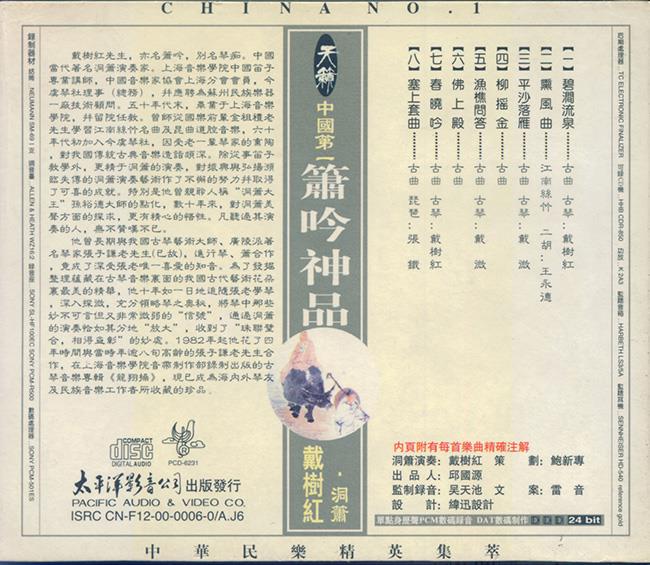 CHINA NO. 1
戴樹紅先生，亦名簫吟，別名琴痴，中國
當代著名洞簫演奏家。上海音樂學院中國笛子
專業講師，中國音樂家協會上海分會會員，今
虞琴社理事（總務），并應聘為蘇州民族樂器
一廠技術顧問。五十年代末，畢業于上海音樂
學院，并留院任教。曾師從國樂前輩金祖禮老
先生學習江南絲竹名曲及昆曲道院音樂，六十
年代初加入今虞琴社，因受老一輩琴家的熏陶
，對我國傳統古典音樂造詣頗深。除從事笛子
教學外，更精于洞簫的演奏，對振興與弘揚瀕
臨失傳的洞簫演奏藝術作了不懈的努力并取得
了可喜的成就。特別是他曾親聆人稱“洞簫大
王”孫裕德大師的點化，數十年來，對洞簫美
聲方面的探求，更有精心的悟性。凡聽過其演
奏的人，無不贊嘆不已。
他曾長期與我國古琴藝術大師、廣陵派著
名琴家張子謙老先生(已故)，進行琴、簫合作
，竟成了深受張老唯一喜愛的知音。為了發掘
整理蘊藏在古琴音樂裏面的我國古代藝術花朵
裏最美的精華，他十年如一日地追隨張老學琴
，深入探微，充分領略琴之奧秘，將琴中那些
妙不可言但又非常微弱的“信號”，通過洞簫
的演奏恰如其分地“放大”，收到了“珠聯璧
合，相得益彰”的妙處。1982年起他花了四
年時間與當時年逾八旬高齡的張子謙老先生合
作，在上海音樂學院音樂制作部錄制出版的古
琴音樂專輯《龍翔操》，現已成為海內外琴友
及民族音樂工作者所收藏的珍品。
錄制器材 話筒：NEUMANN SM-69 1支 調音臺：ALLEN & HEATH WZ16:2 錄音座：SONY SL-HF100EC SONY PCM-R500 數碼處理器：SONY PCM-501ES
天籟
中國第一
簫吟神品
戴樹紅
·洞簫
【一】碧澗流泉………古曲 古琴：戴樹紅
【二】熏風曲………江南絲竹 二胡：王永德
【三】平沙落雁………古曲 古琴：戴 微
【四】柳搖金………古曲
【五】漁樵問答………古曲 古琴：戴 微
【六】佛上殿………古曲
【七】春曉吟………古曲 古琴：戴樹紅
【八】塞上套曲………古曲 琵琶：張 鐵
后期處理器：TC ELECTRONIC FINALIZER HHB CDR-850 K 2A3 監聽音箱：HARBETH LS3/5A 監聽耳機：SENNHEISER HD-540 reference gold
COMPACT
disc
DIGITAL AUDIO
PCD-6231
太平洋影音公司出版發行
PACIFIC AUDIO & VIDEO CO.
ISRC CN-F12-00-0006-0/A.J6
内頁附有每首樂曲精確注解
洞簫演奏：戴樹紅 策 劃：鮑新專
出 品 人：邱國源
監制録音：吴天池 文 案：雷 音
設 計：緯迅設計
單點身歷聲PCM數碼録音 DAT數碼制作 DDD 24 bit
中華民樂精英集萃